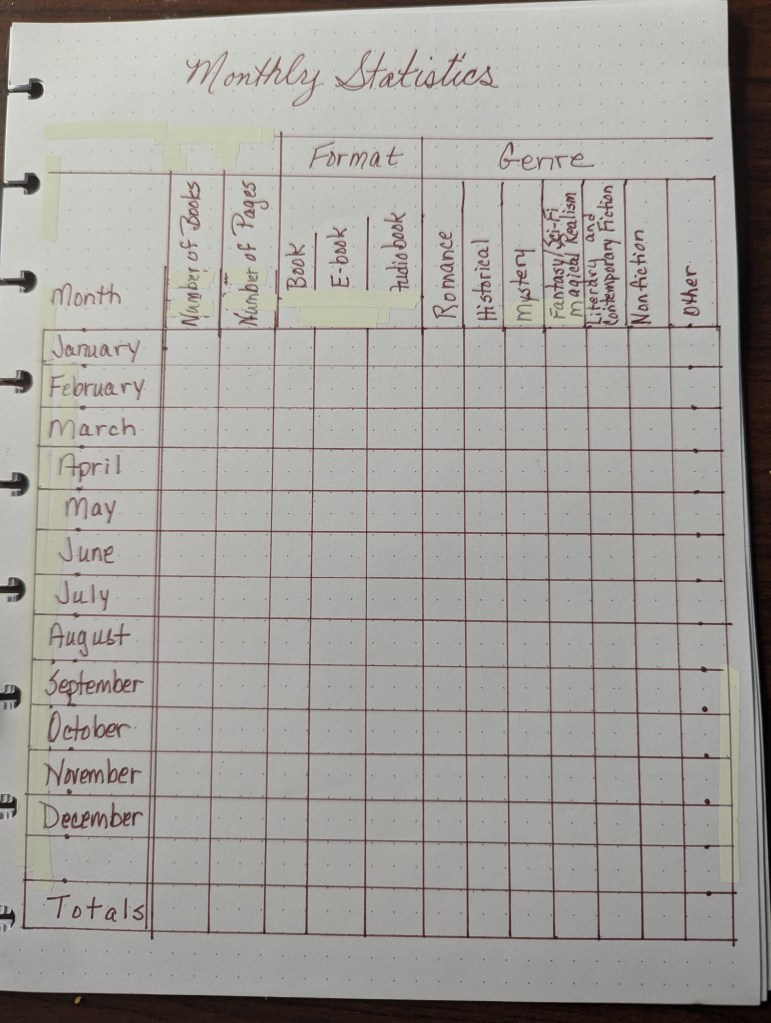 Monthly Statistics
Format
Genre
Month
Number of Books
Number of Pages
Book
E-book
Audiobook
Romance
Historical
Mystery
Fantasy/Sci-Fi
Magical Realism
Literary and
Contemporary Fiction
Nonfiction
Other
January
February
March
April
May
June
July
August
September
October
November
December
Totals